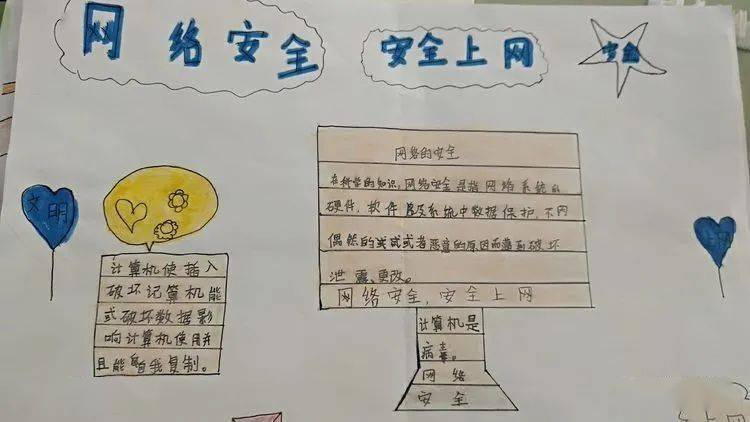 网络安全
安全上网
安全
文明
网络的安全
在科学的知识,网络安全是指网络系统的
硬件,软件及系统中数据保护,不因
偶然的或者恶意的原因而遭到破坏
泄露、更改。
网络安全,安全上网
计算机是
病毒。
网络
安全
计算机使插入
破坏记算机能
或破坏数据影
响计算机使用并
且能自我复制。
上网